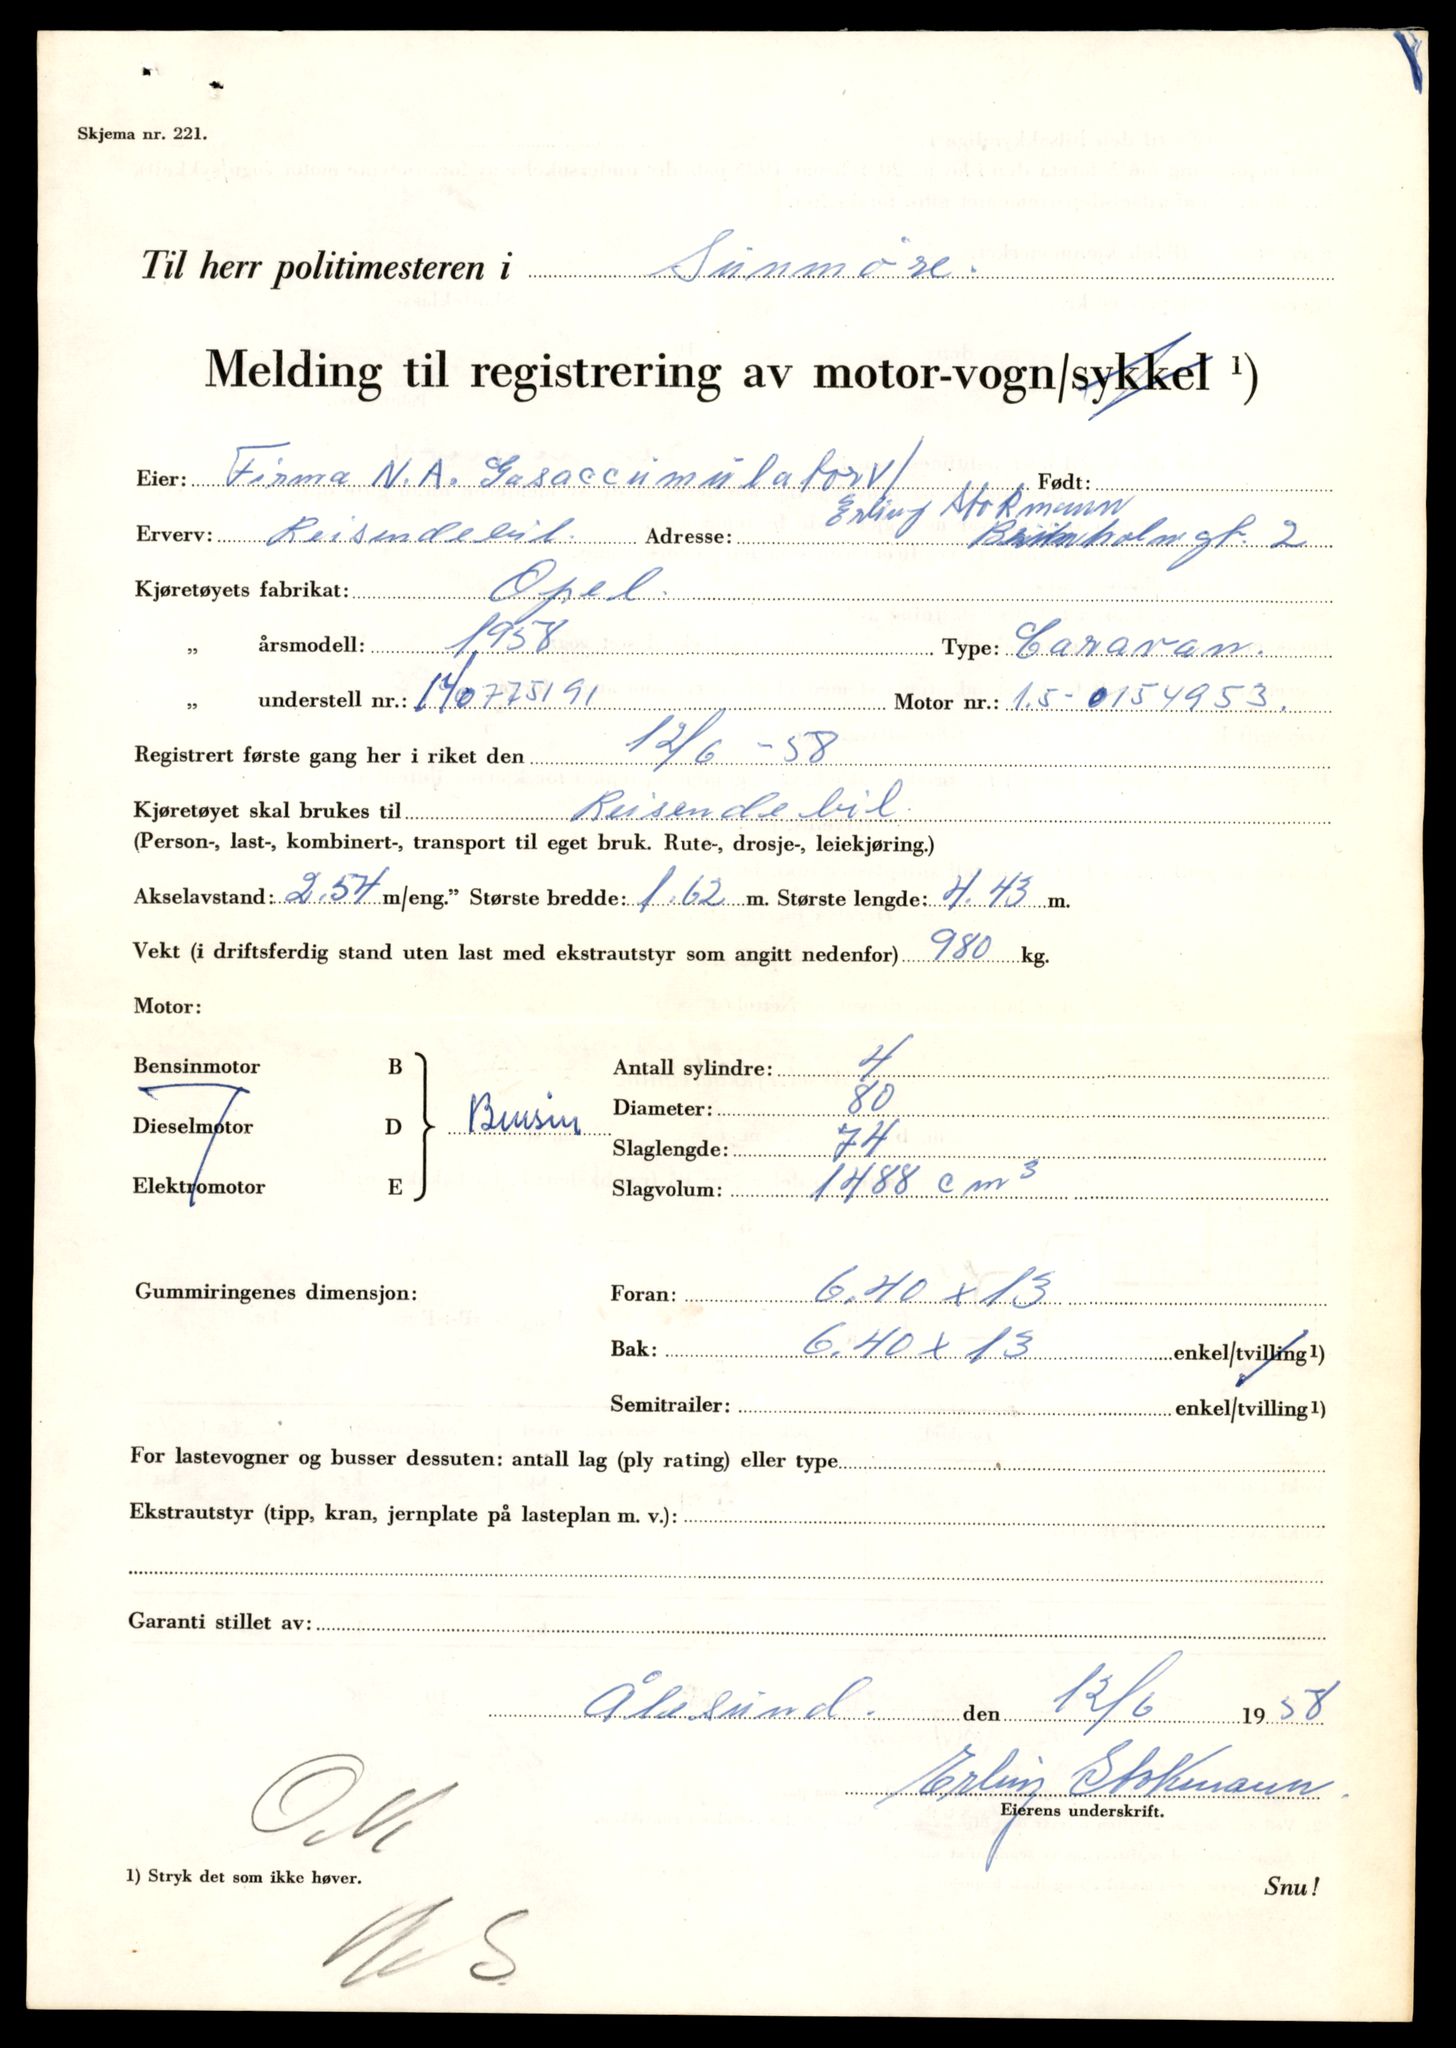 Skjema nr. 221.
Til herr politimesteren i Sunmöre.
Melding til registrering av motor-vogn/sykkel ¹)
Eier: Firma N.A. Gasaccumulator v/ Født:
Erling Stokmann
Erverv: Reisendebil. Adresse: gt. 2
Kjøretøyets fabrikat: Opel.
„ årsmodell: 1958 Type: Caravan.
„ understell nr.: 14/0775191 Motor nr.: 1.5-0154953.
Registrert første gang her i riket den 12/6 - 58
Kjøretøyet skal brukes til Reisendebil.
(Person-, last-, kombinert-, transport til eget bruk. Rute-, drosje-, leiekjøring.)
Akselavstand: 2.54 m/eng.” Største bredde: 1.62 m. Største lengde: 4.43 m.
Vekt (i driftsferdig stand uten last med ekstrautstyr som angitt nedenfor) 980 kg.
Motor:
Bensinmotor B Antall sylindre: 4
Diameter: 80
Dieselmotor D Bensin
Slaglengde: 74
Elektromotor E Slagvolum: 1488 cm³
Gummiringenes dimensjon: Foran: 6.40 x 13
Bak: 6.40 x 13 enkel/tvilling¹)
Semitrailer: enkel/tvilling¹)
For lastevogner og busser dessuten: antall lag (ply rating) eller type
Ekstrautstyr (tipp, kran, jernplate på lasteplan m. v.):
Garanti stillet av:
Ålesund. den 12/6 1958
Erling Stokmann.
Eierens underskrift.
1) Stryk det som ikke høver.
Snu!